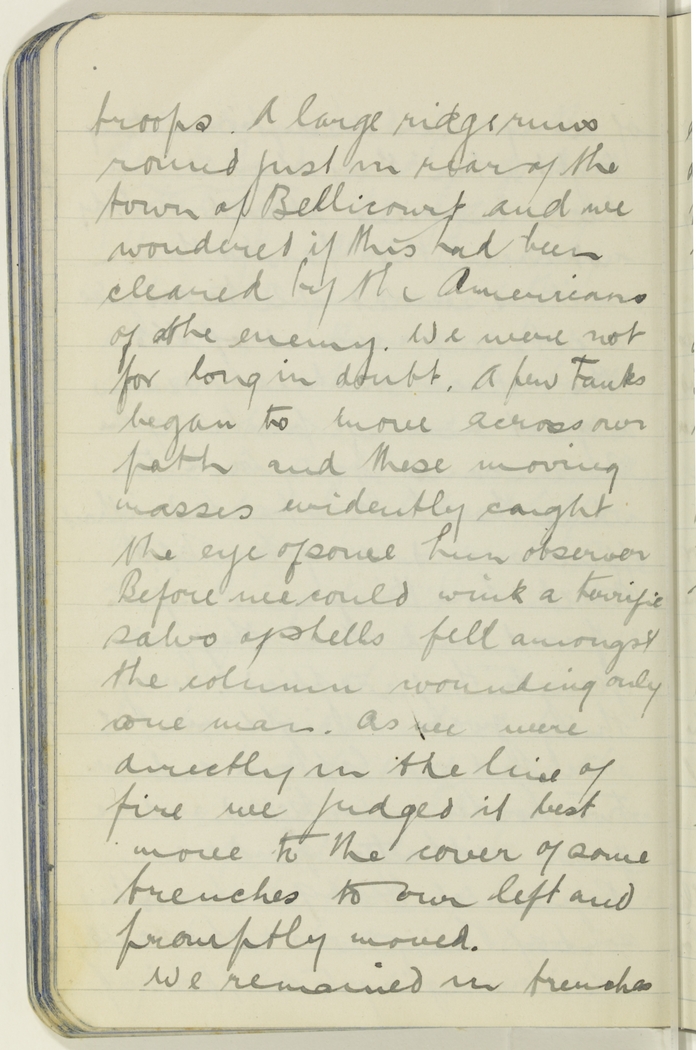 troops. A large ridge runs
round just in rear of the
town of Bellicourt and we
wondered if this had been
cleared by the Americans
of the enemy. We were not
for long in doubt. A few Tanks
began to move across our
path and these moving
masses evidently caught
the eye of some hun observer
Before we could wink a terrific
salvo of shells fell amongst
the column wounding only
one man. As we were
directly in the line of
fire we judged it best
move to the cover of some
trenches to our left and
promptly moved.
We remained in trenches